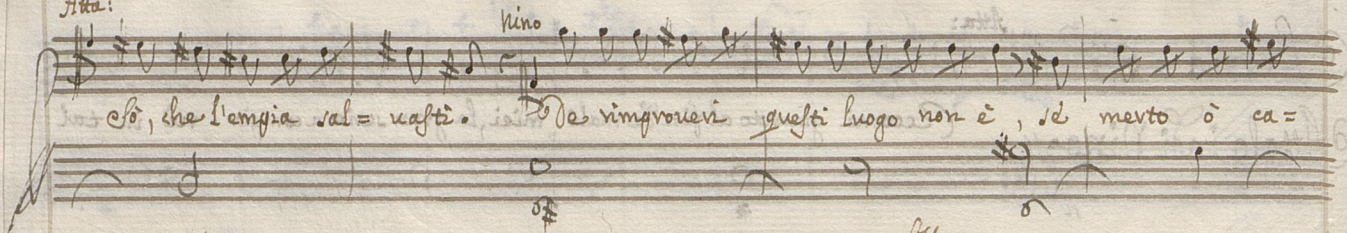 Atta:
Nino
Sò, che l'empia sal= vasti. De rimproveri questi luogo non è, sè merto ò ca=